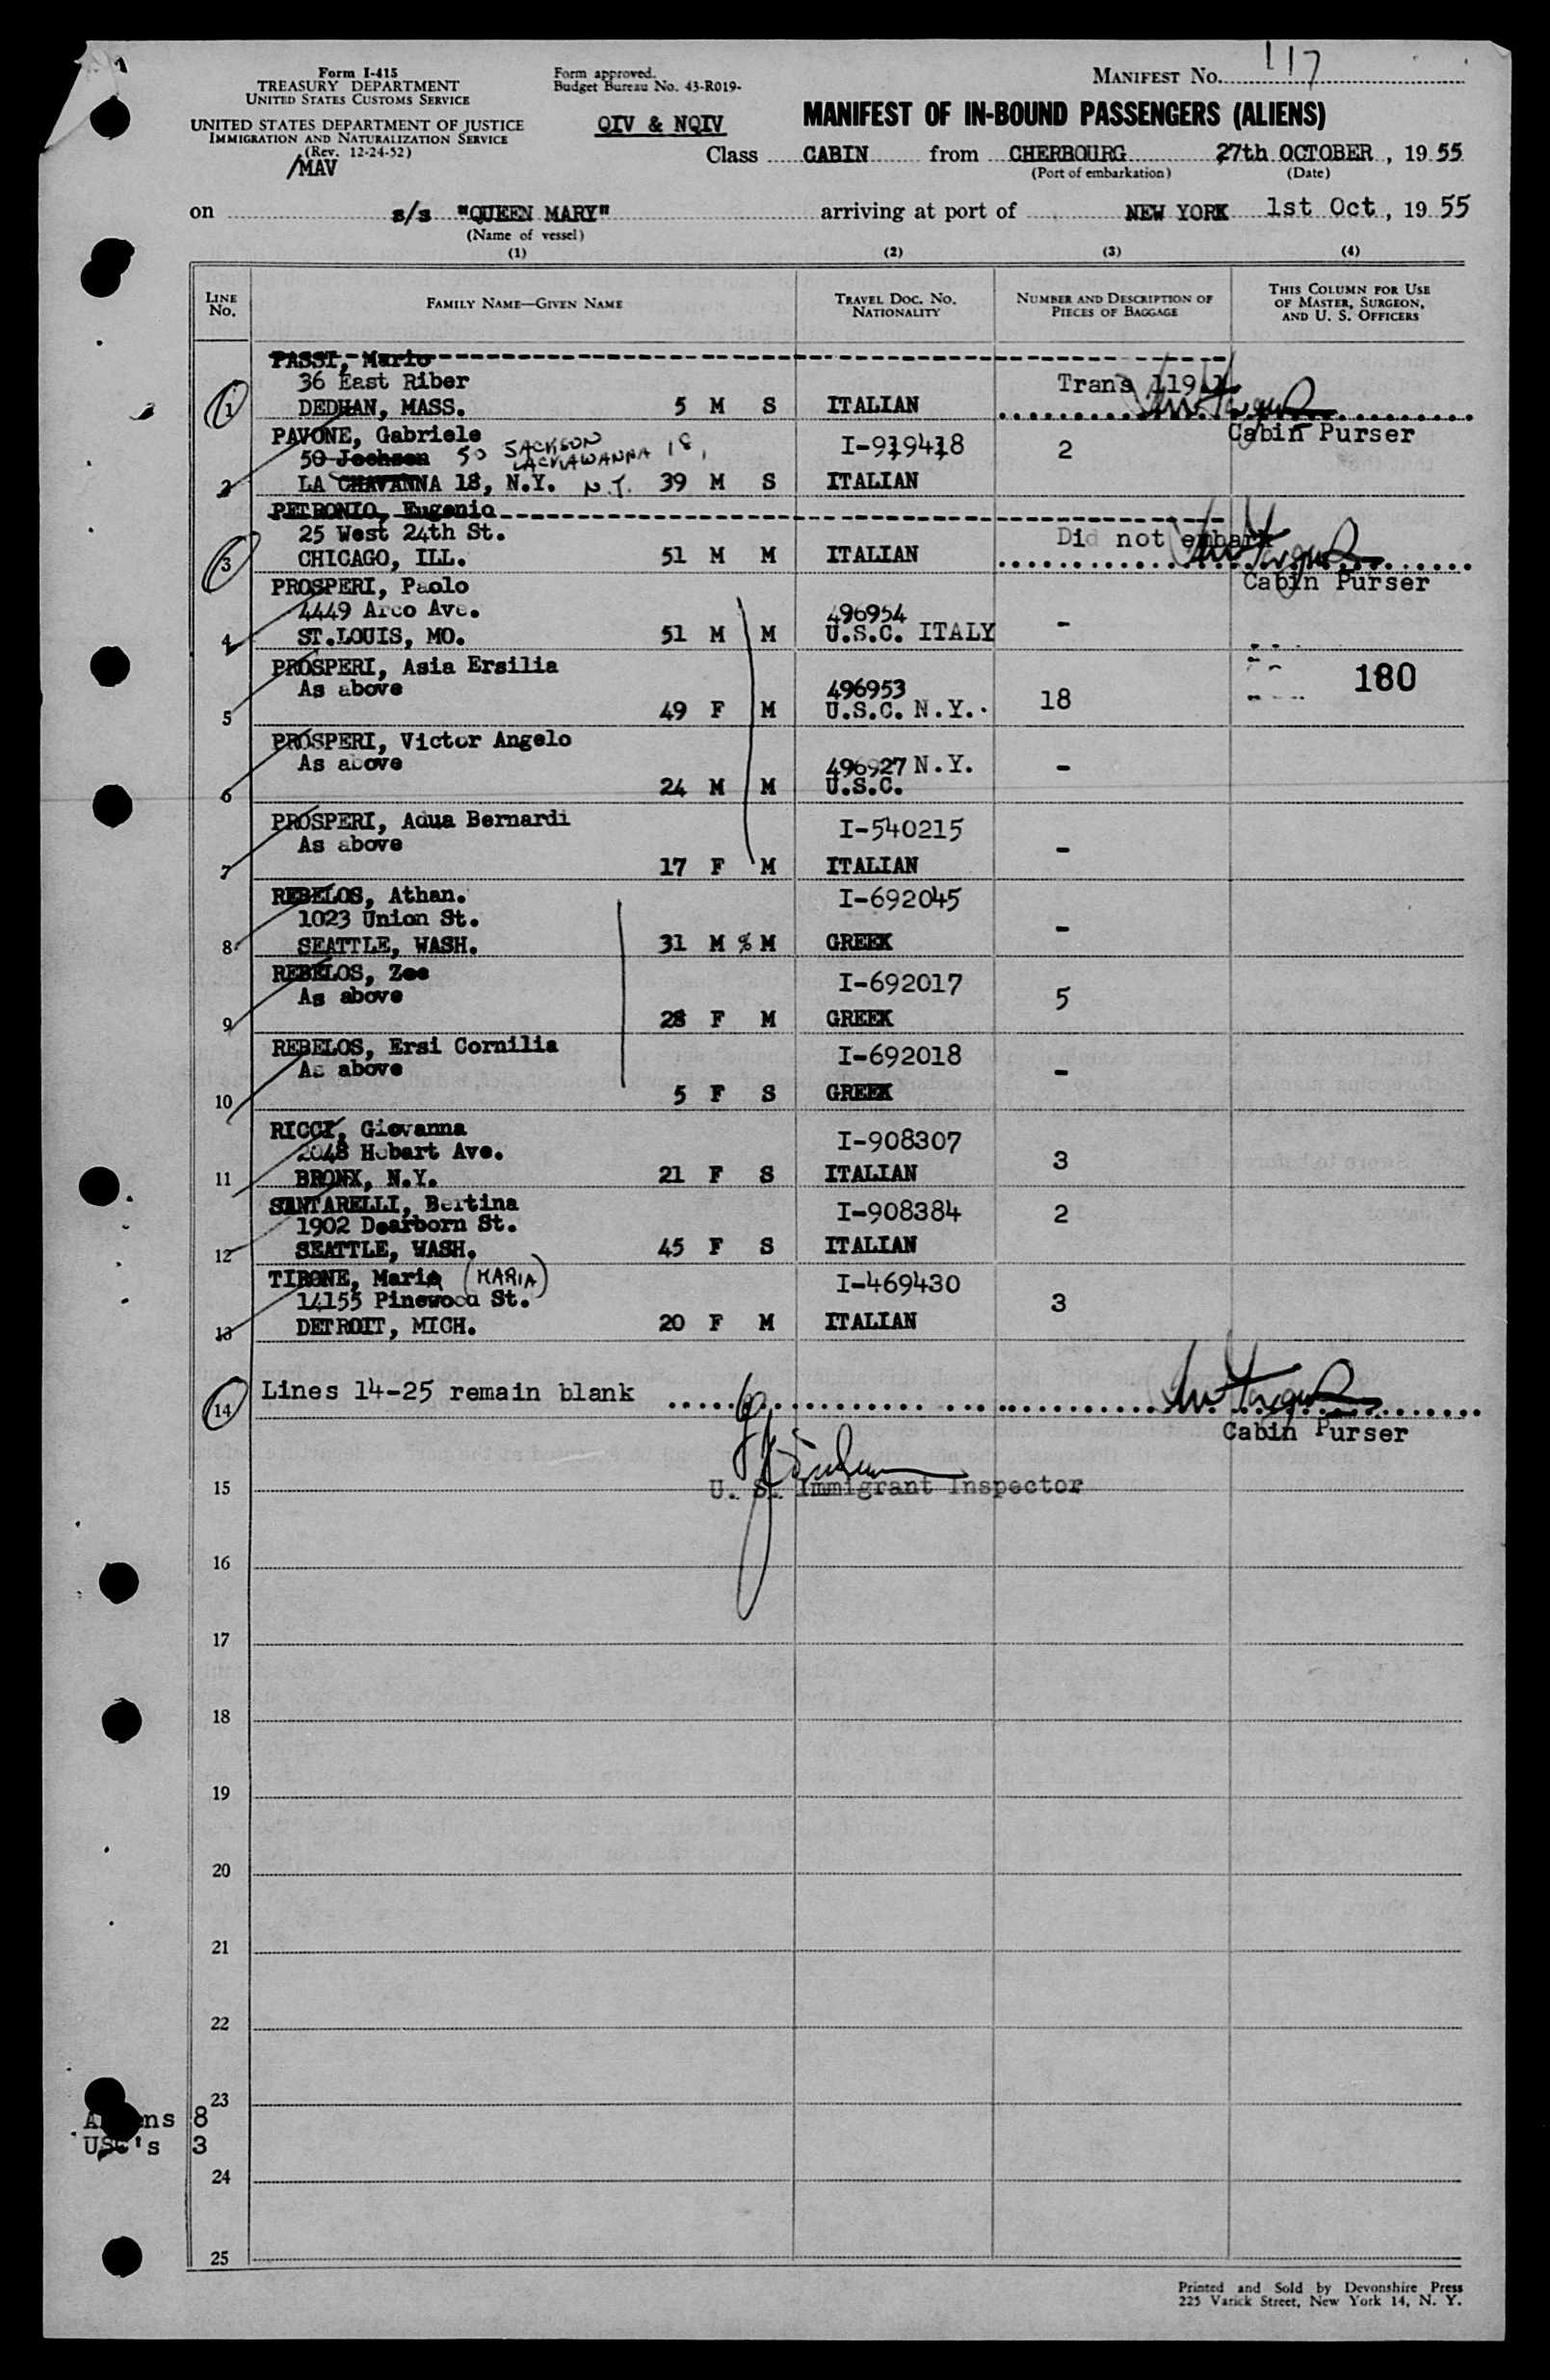 Form I-415
TREASURY DEPARTMENT
UNITED STATES CUSTOMS SERVICE
UNITED STATES DEPARTMENT OF JUSTICE
IMMIGRATION AND NATURALIZATION SERVICE
(Rev. 12-24-52)
/MAV
Form approved.
Budget Bureau No. 43-R019-
QIV & NQIV
MANIFEST NO. 117
MANIFEST OF IN-BOUND PASSENGERS (ALIENS)
Class CABIN from CHERBOURG 27th OCTOBER, 19 55
(Port of embarkation) (Date)
on s/s "QUEEN MARY" arriving at port of NEW YORK 1st Oct, 19 55
(Name of vessel)
(1) (2) (3) (4)
LINE NO. FAMILY NAME—GIVEN NAME TRAVEL DOC. NO. NATIONALITY NUMBER AND DESCRIPTION OF PIECES OF BAGGAGE THIS COLUMN FOR USE OF MASTER, SURGEON, AND U. S. OFFICERS
PASSI, Mario
36 East Riber Trans 119
1 DEDHAN, MASS. 5 M S ITALIAN
Cabin Purser
PAVONE, Gabriele I-919418 2
50 Jochson 50 JACKSON
LACKAWANNA 18,
2 LA CHAVANNA 18, N.Y. N.Y. 39 M S ITALIAN
PETRONIO, Eugenio
25 West 24th St. Did not embark
3 CHICAGO, ILL. 51 M M ITALIAN
Cabin Purser
PROSPERI, Paolo
4449 Arco Ave. 496954
4 ST.LOUIS, MO. 51 M M U.S.C. ITALY -
PROSPERI, Asia Ersilia 180
As above 496953 18
5 49 F M U.S.C. N.Y.
PROSPERI, Victor Angelo
As above 496927 N.Y. -
6 24 M M U.S.C.
PROSPERI, Adua Bernardi I-540215
As above -
7 17 F M ITALIAN
REBELOS, Athan. I-692045
1023 Union St. -
8 SEATTLE, WASH. 31 M % M GREEK
REBELOS, Zoe I-692017
As above 5
9 28 F M GREEK
REBELOS, Ersi Cornilia I-692018
As above -
10 5 F S GREEK
RICCI, Giovanna I-908307
2048 Hobart Ave. 3
11 BRONX, N.Y. 21 F S ITALIAN
SANTARELLI, Bertina I-908384 2
1902 Dearborn St.
12 SEATTLE, WASH. 45 F S ITALIAN
TIBONE, Maria (MARIA) I-469430
14155 Pinewood St. 3
13 DETROIT, MICH. 20 F M ITALIAN
14 Lines 14-25 remain blank
Cabin Purser
15 U. S. Immigrant Inspector
16
17
18
19
20
21
22
23
Aliens 8
USC's 3
24
25
Printed and Sold by Devonshire Press
225 Varick Street, New York 14, N. Y.